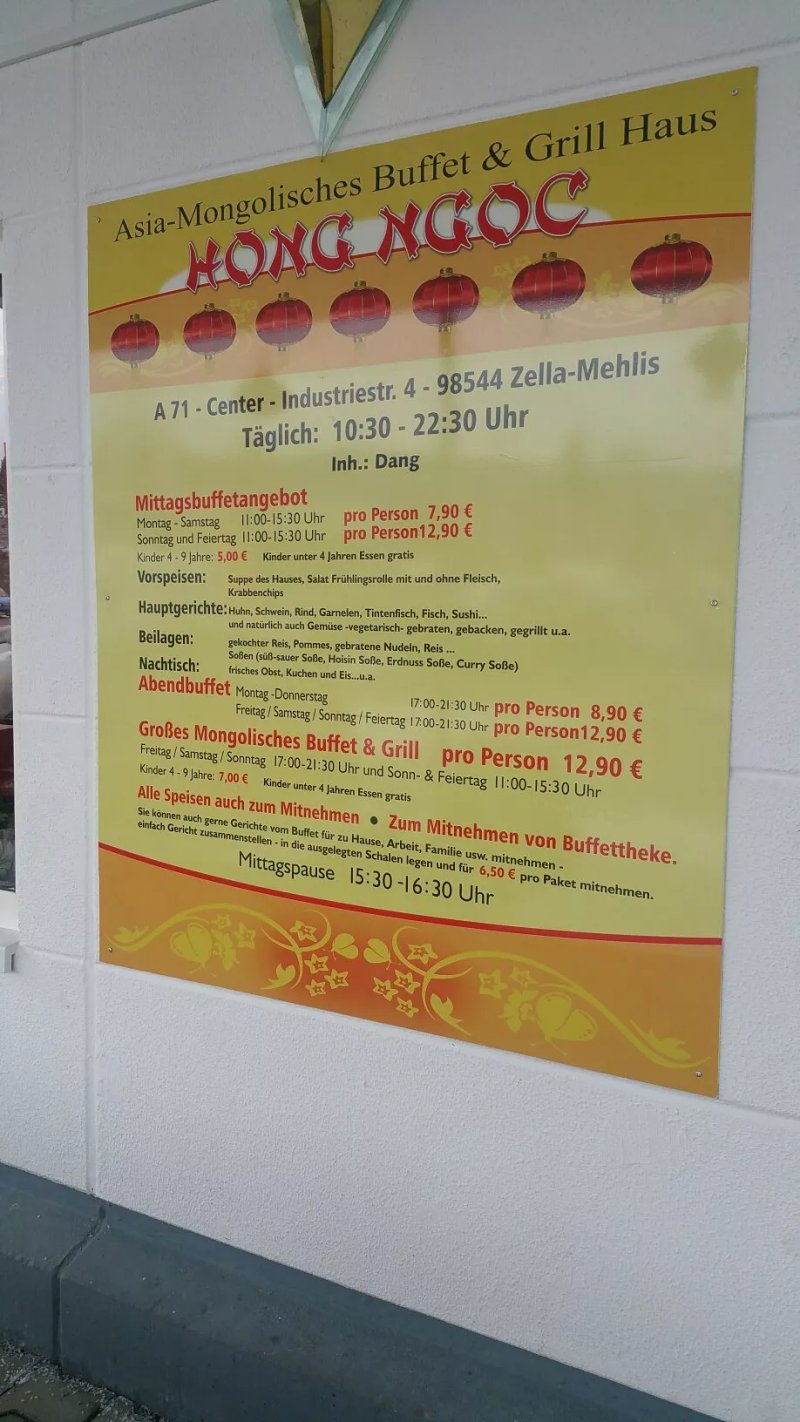 Asia-Mongolisches Buffet & Grill Haus
HONG NGOC
A 71 - Center - Industriestr. 4 - 98544 Zella-Mehlis
Täglich: 10:30 - 22:30 Uhr
Inh.: Dang
Mittagsbuffetangebot
Montag - Samstag 11:00-15:30 Uhr pro Person 7,90 €
Sonntag und Feiertag 11:00-15:30 Uhr pro Person12,90 €
Kinder 4 - 9 Jahre: 5,00 € Kinder unter 4 Jahren Essen gratis
Vorspeisen: Suppe des Hauses, Salat Frühlingsrolle mit und ohne Fleisch,
Krabbenchips
Hauptgerichte: Huhn, Schwein, Rind, Garnelen, Tintenfisch, Fisch, Sushi...
und natürlich auch Gemüse -vegetarisch- gebraten, gebacken, gegrillt u.a.
Beilagen: gekochter Reis, Pommes, gebratene Nudeln, Reis ...
Soßen (süß-sauer Soße, Hoisin Soße, Erdnuss Soße, Curry Soße)
Nachtisch: frisches Obst, Kuchen und Eis...u.a.
Abendbuffet Montag -Donnerstag 17:00-21:30 Uhr pro Person 8,90 €
Freitag / Samstag / Sonntag / Feiertag 17:00-21:30 Uhr pro Person12,90 €
Großes Mongolisches Buffet & Grill pro Person 12,90 €
Freitag / Samstag / Sonntag 17:00-21:30 Uhr und Sonn- & Feiertag 11:00-15:30 Uhr
Kinder 4 - 9 Jahre: 7,00 € Kinder unter 4 Jahren Essen gratis
Alle Speisen auch zum Mitnehmen • Zum Mitnehmen von Buffettheke.
Sie können auch gerne Gerichte vom Buffet für zu Hause, Arbeit, Familie usw. mitnehmen -
einfach Gericht zusammenstellen - in die ausgelegten Schalen legen und für 6,50 € pro Paket mitnehmen.
Mittagspause 15:30 -16:30 Uhr